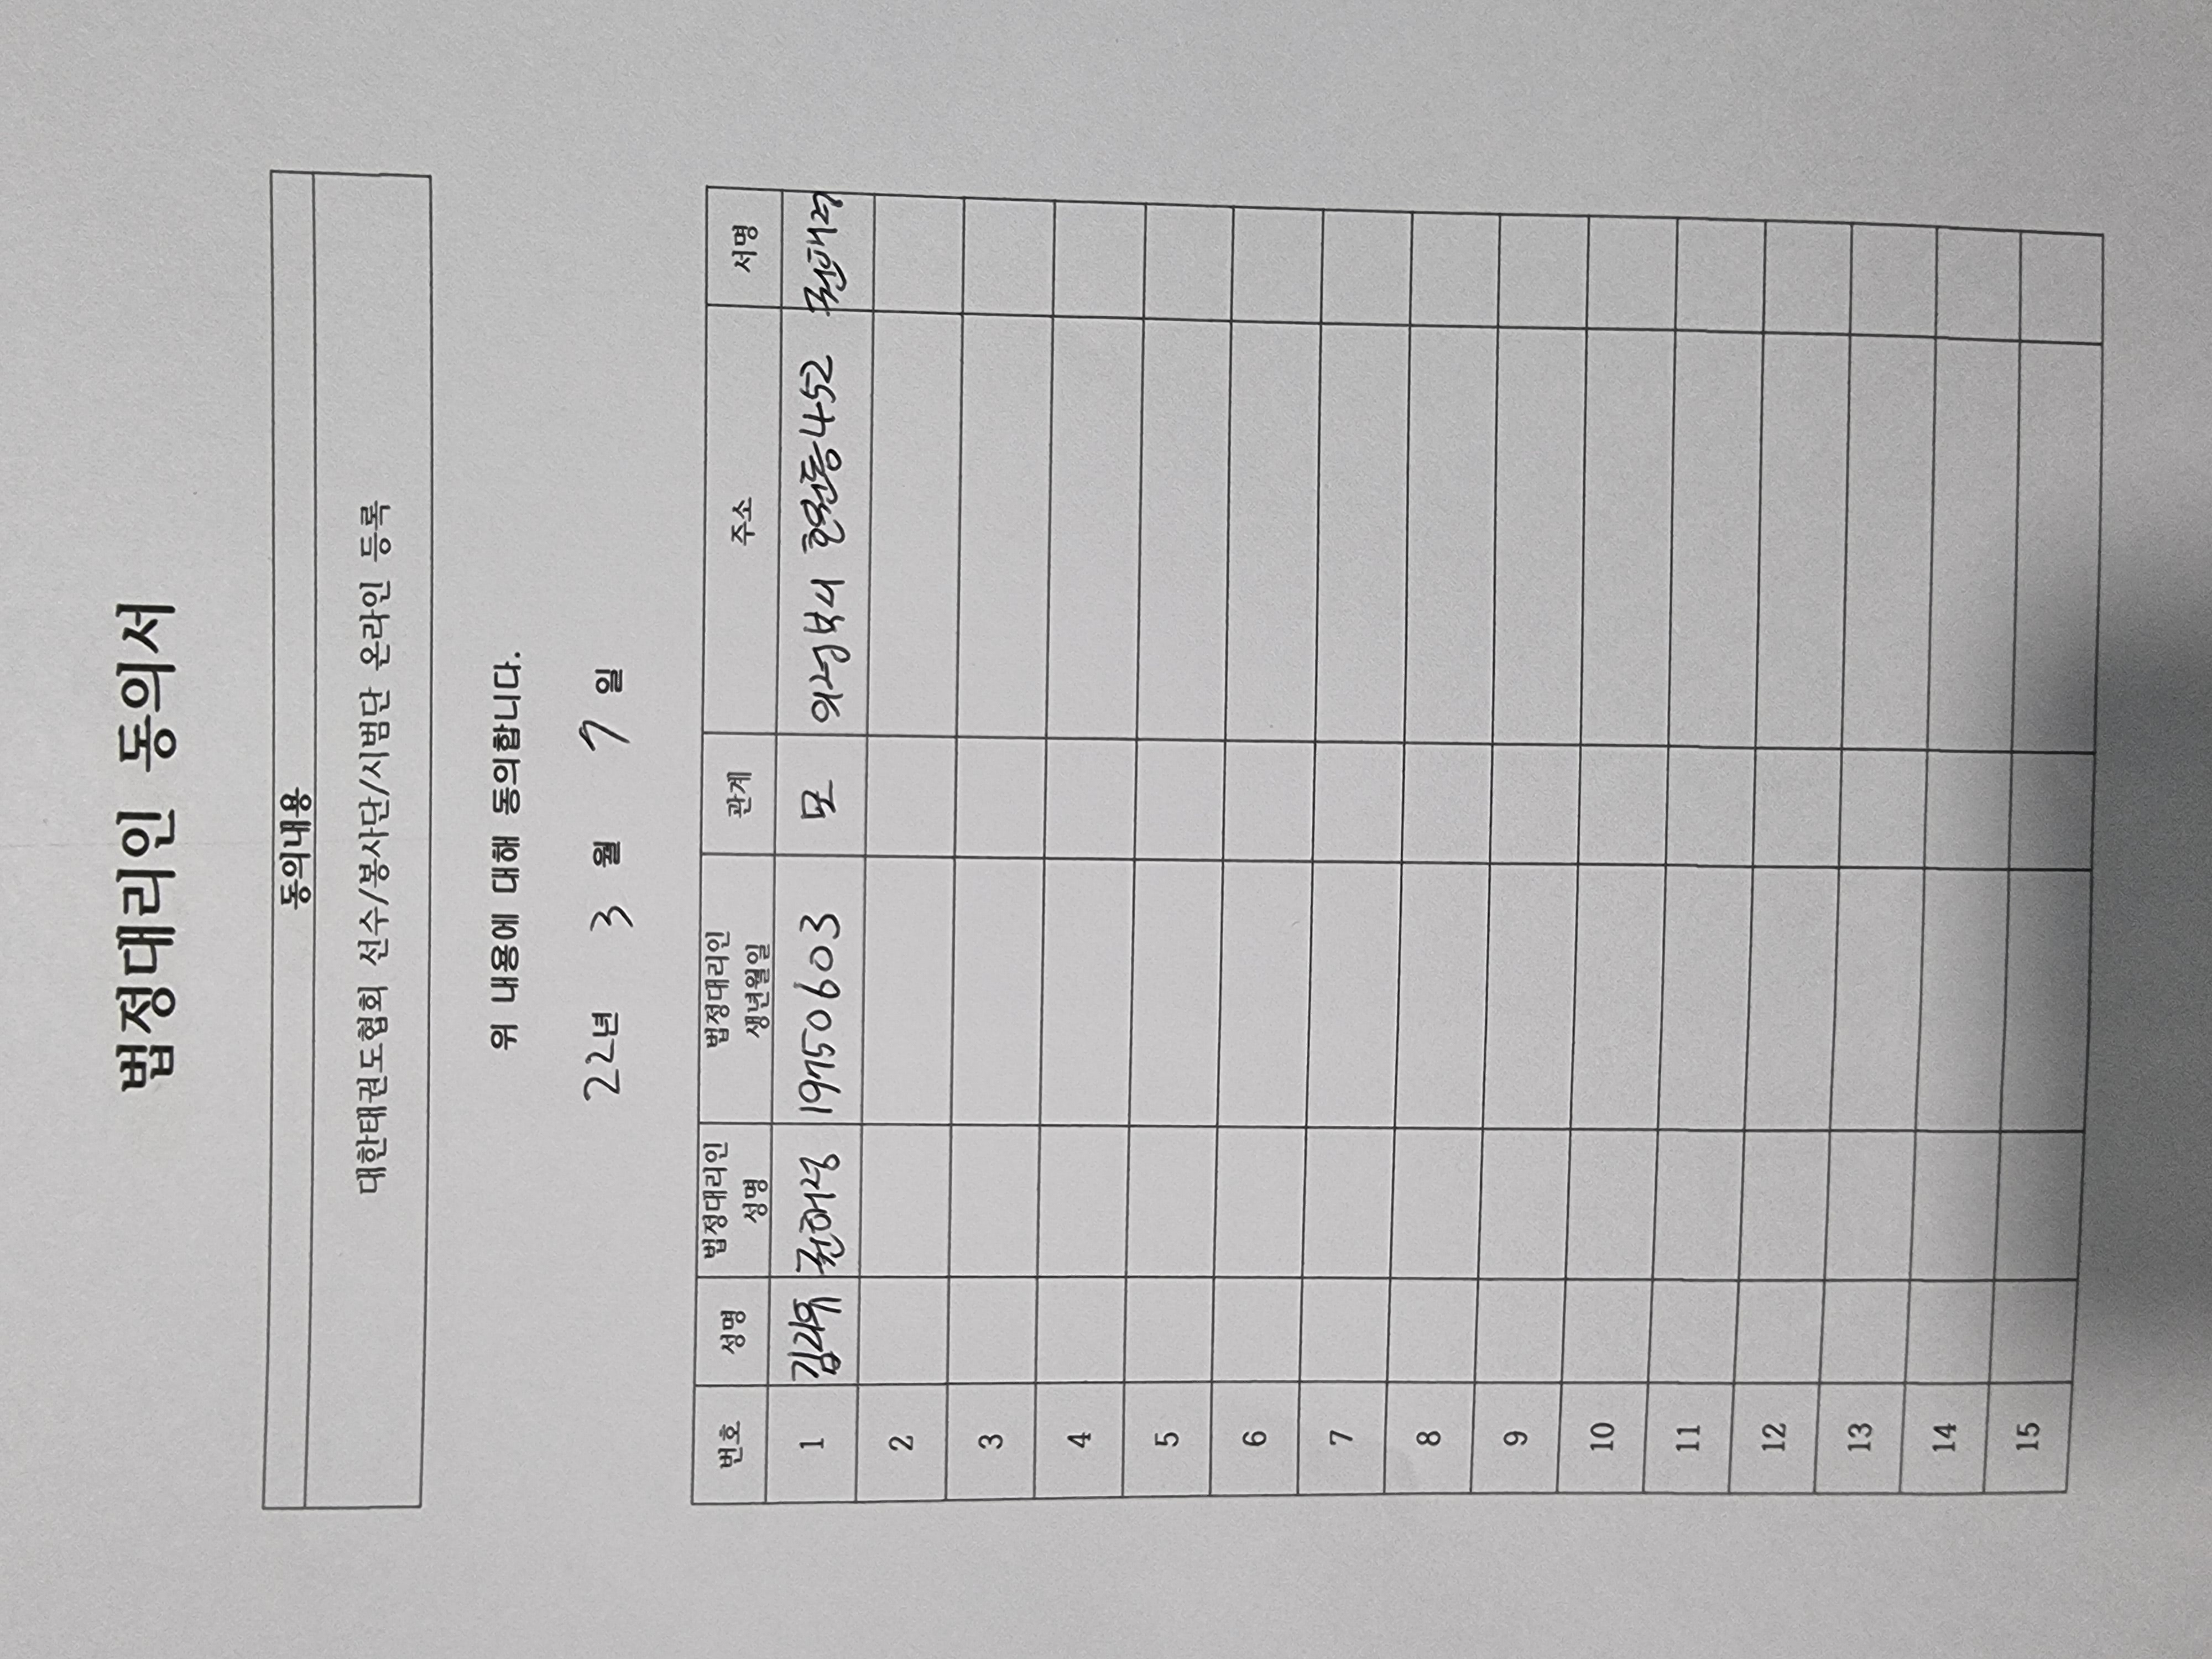 법정대리인 동의서
동의내용
대한태권도협회 선수/봉사단/시범단 온라인 등록
위 내용에 대해 동의합니다.
22년 3 월 7 일
번호 성명 법정대리인 성명 법정대리인 생년월일 관계 주소 서명
1 19750603 모 의정부시 호원동452
2
3
4
5
6
7
8
9
10
11
12
13
14
15